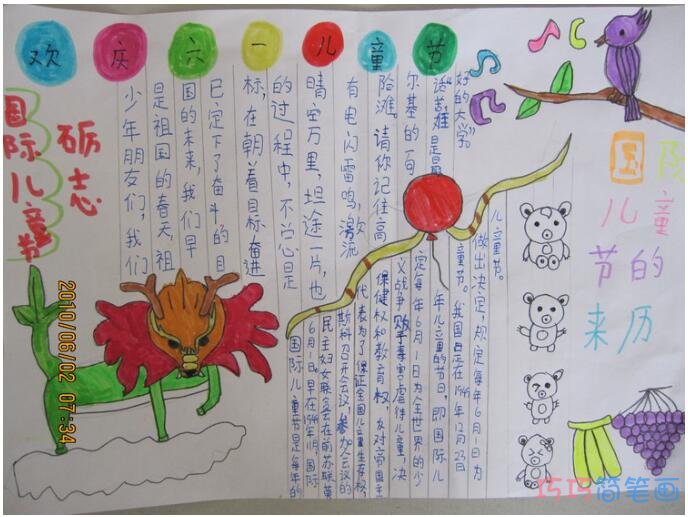 欢庆六一儿童节
国际儿童节
砺志
少年朋友们，我们
是祖国的春天，祖
国的未来，我们早
已定下了奋斗的目
标，在朝着目标奋进
的过程中，不总是
晴空万里，坦途一片，也
有电闪雷鸣，流
险滩。请你记住高
尔基的一句
话“苦难是最
好的大学”。
国际儿童节的来历
国际儿童节是每年的
6月1日。早在1949年11月，国际
民主妇女联合会在前苏联莫
斯科召开会议，参加会议的
代表为了保证全国儿童生存权、
保健权和教育权，反对帝国主
义战争贩子毒害虐待儿童，决
定每年6月1日为全世界的少
年儿童的节日，即国际儿
童节。我国已定在1949年12月23日
做出决定，规定每年6月1日为
儿童节。
2010/06/02 07:34
巧巧简笔画